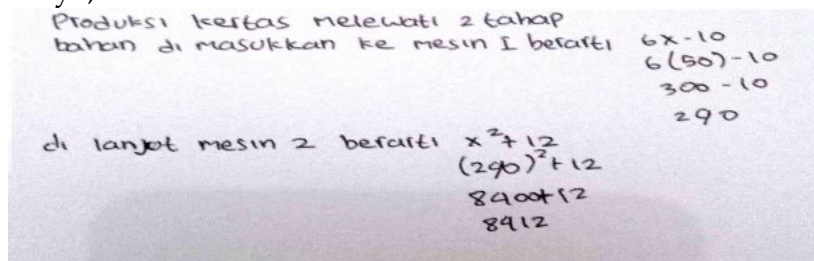 Produksi kertas melewati 2 tahap
bahan di masukkan ke mesin I berarti 6x-10
6(50)-10
300-10
290
di lanjot mesin 2 berarti x²+12
(290)²+12
8400+12
8412